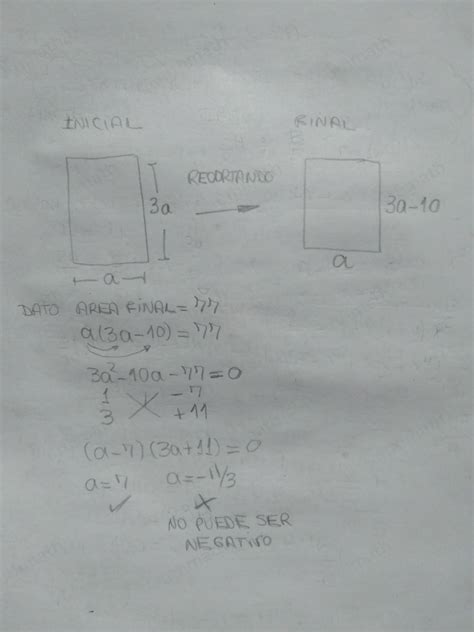 INICIAL
FINAL
RECORTANDO
3a
3a-10
a
a
DATO AREA FINAL = 77
a(3a-10) = 77
3a²-10a-77=0
1 -7
3 +11
(a-7)(3a+11)=0
a=7 a=-11/3
✓ ✗
NO PUEDE SER
NEGATIVO